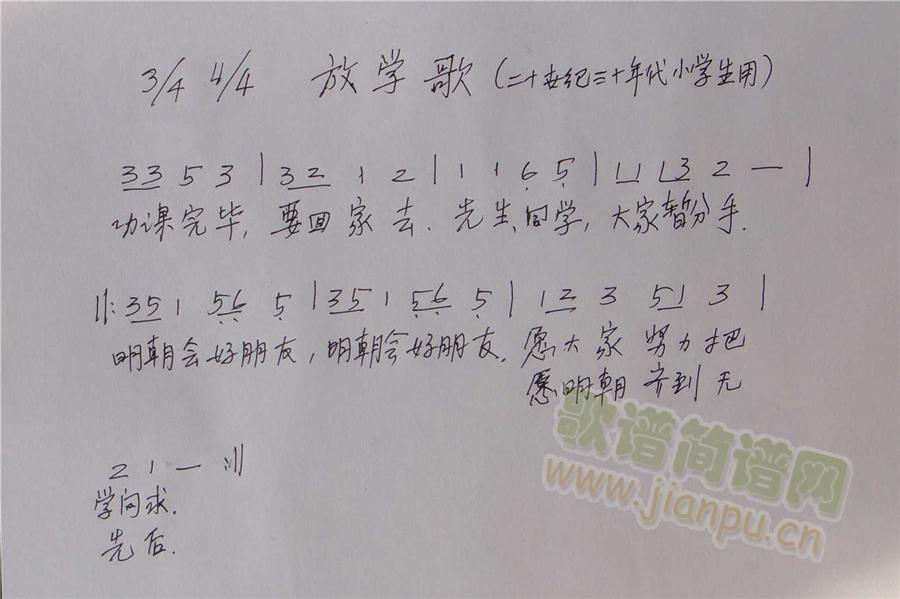 3/4 4/4 放学歌(二十世纪三十年代小学生用)
33 5 3 | 32 1 2 | 1 1 6 5 | 11 13 2 — |
功课完毕, 要回家去. 先生、同学, 大家暂分手.
||: 35 1 56 5 | 35 1 56 5 | 12 3 51 3 |
明朝会好朋友, 明朝会好朋友. 愿大家努力把
愿明朝齐到无
2 1 — :||
学问求.
先后.
歌谱简谱网
www.jianpu.cn